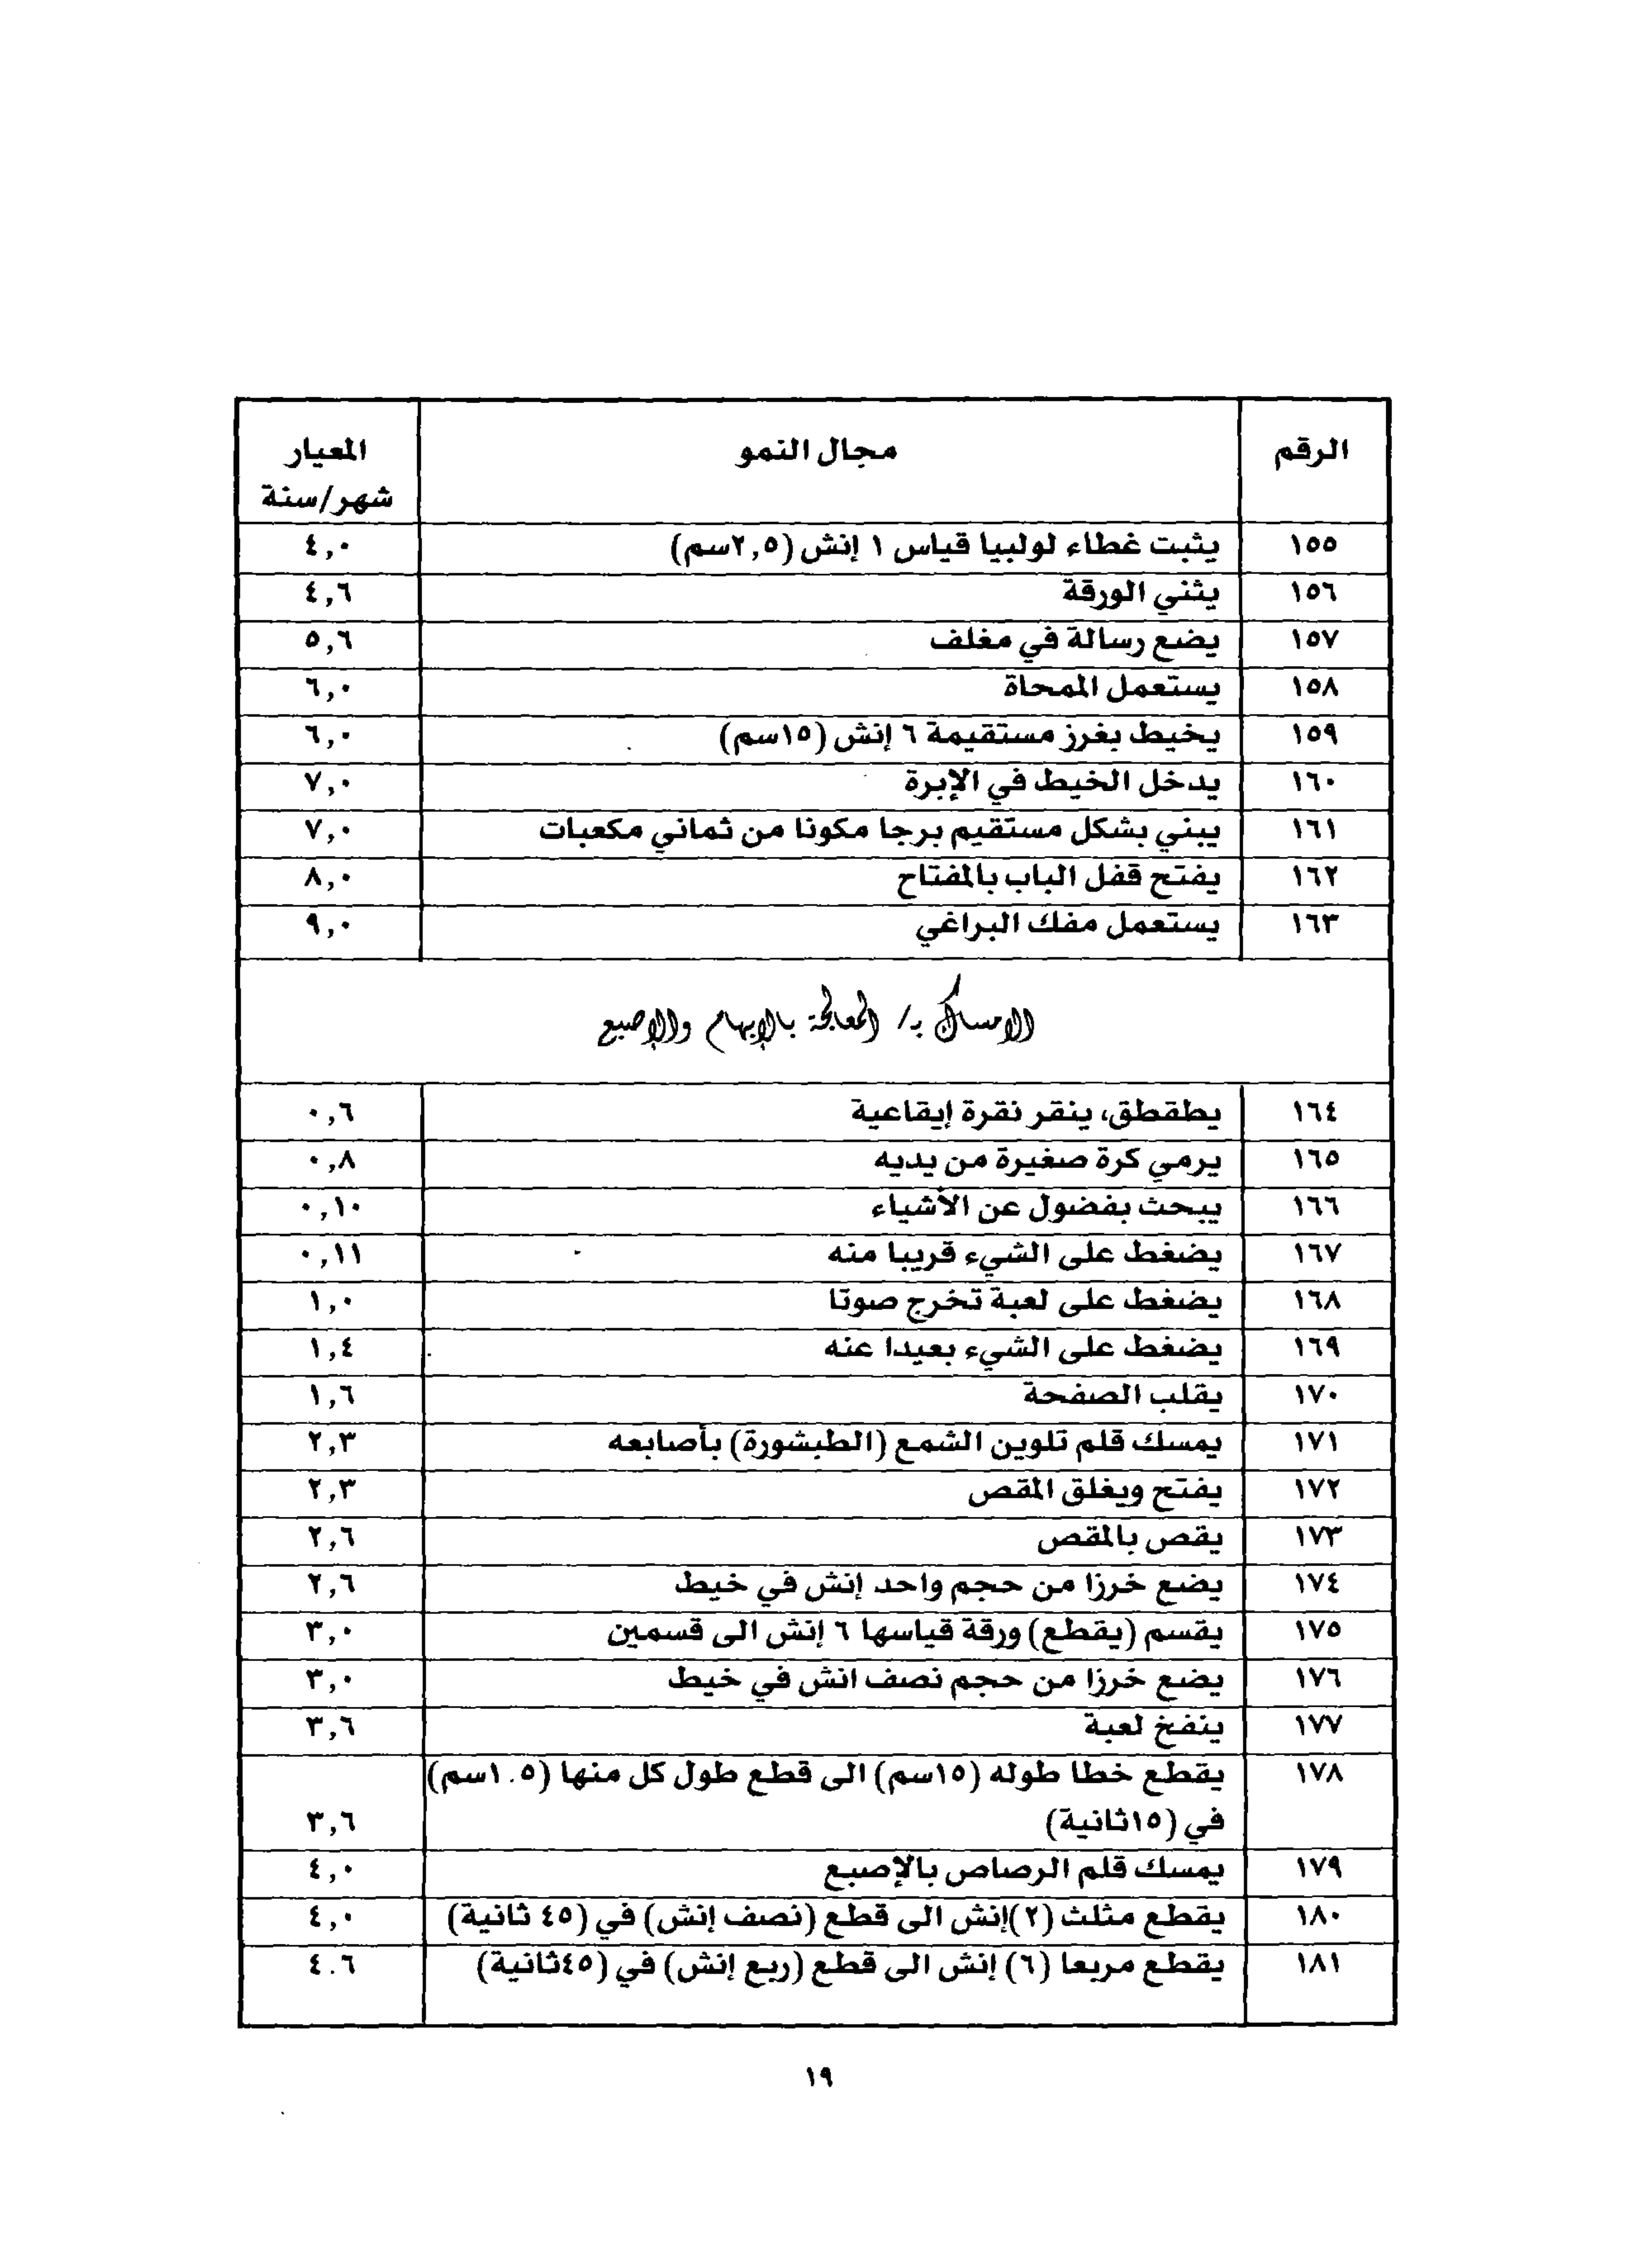 الرقم مجال النمو المعيار
شهر/سنة
١٥٥ يثبت غطاء لولبيا قياس ١ إنش (٢,٥سم) ٤,٠
١٥٦ يثني الورقة ٤,٦
١٥٧ يضع رسالة في مغلف ٥,٦
١٥٨ يستعمل الممحاة ٦,٠
١٥٩ يخيط بغرز مستقيمة ٦ إنش (١٥سم) ٦,٠
١٦٠ يدخل الخيط في الإبرة ٧,٠
١٦١ يبني بشكل مستقيم برجا مكونا من ثماني مكعبات ٧,٠
١٦٢ يفتح قفل الباب بالمفتاح ٨,٠
١٦٣ يستعمل مفك البراغي ٩,٠
الامساك بـ/ المعالجة بالإبهام والإصبع
١٦٤ يطقطق، ينقر نقرة إيقاعية ٠,٦
١٦٥ يرمي كرة صغيرة من يديه ٠,٨
١٦٦ يبحث بفضول عن الأشياء ٠,١٠
١٦٧ يضغط على الشيء قريبا منه ٠,١١
١٦٨ يضغط على لعبة تخرج صوتا ١,٠
١٦٩ يضغط على الشيء بعيدا عنه ١,٤
١٧٠ يقلب الصفحة ١,٦
١٧١ يمسك قلم تلوين الشمع (الطبشورة) بأصابعه ٢,٣
١٧٢ يفتح ويغلق المقص ٢,٣
١٧٣ يقص بالمقص ٢,٦
١٧٤ يضع خرزا من حجم واحد إنش في خيط ٢,٦
١٧٥ يقسم (يقطع) ورقة قياسها ٦ إنش الى قسمين ٣,٠
١٧٦ يضع خرزا من حجم نصف انش في خيط ٣,٠
١٧٧ ينفخ لعبة ٣,٦
١٧٨ يقطع خطا طوله (١٥سم) الى قطع طول كل منها (١.٥سم)
في (١٥ثانية) ٣,٦
١٧٩ يمسك قلم الرصاص بالإصبع ٤,٠
١٨٠ يقطع مثلث (٢)إنش الى قطع (نصف إنش) في (٤٥ ثانية) ٤,٠
١٨١ يقطع مربعا (٦) إنش الى قطع (ربع إنش) في (٤٥ثانية) ٤.٦
١٩